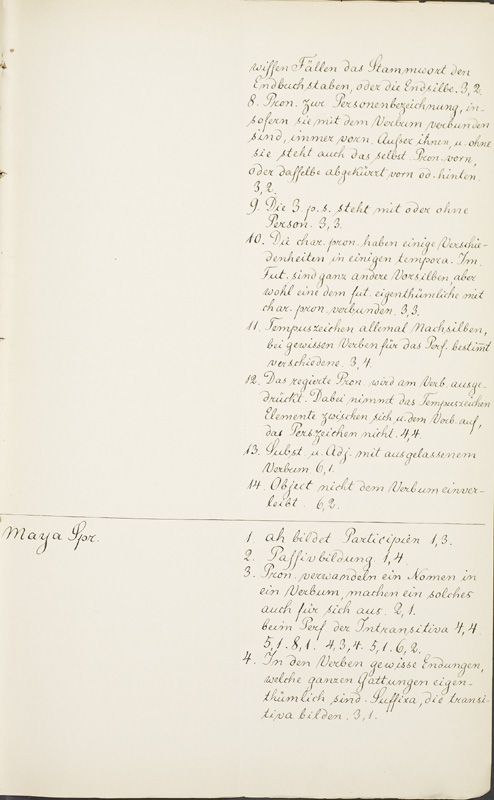 wissen Fällen das Stammwort den
Endbuchstaben, oder die Endsilbe. 3,2.
8. Pron. zur Personenbezeichnung, in-
sofern sie mit dem Verbum verbunden
sind, immer vorn. Ausser ihnen, u. ohne
sie steht auch das selbst. Pron. vorn,
oder dasselbe abgekürzt vorn od. hinten.
3,2.
9. Die 3. p. s. steht mit oder ohne
Person. 3,3.
10. Die char. pron. haben einige Verschie-
denheiten in einigen tempora. Im
Fut. sind ganz andere Vorsilben, aber
wohl eine dem fut. eigenthümliche mit
char. pron. verbunden. 3,3.
11. Tempuszeichen allemal Nachsilben,
bei gewissen Verben für das Perf. bestimt
verschiedene. 3,4.
12. Das regierte Pron. wird am Verb. ausge-
drückt. Dabei nimmt das Tempuszeichen
Elemente zwischen sich u. dem Verb. auf,
das Perszeichen nicht. 4,4.
13. Subst. u. Adj. mit ausgelassenem
Verbum. 6,1.
14. Object nicht dem Verbum einver-
leibt. 6,2.
Maya Spr.
1. ah bildet Participien 1,3.
2. Passivbildung 1,4.
3. Pron. verwandeln ein Nomen in
ein Verbum, machen ein solches
auch für sich aus. 2,1.
beim Perf. der Intransitiva 4,4.
5,1. 8,1. 4,3,4. 5,1. 6,2.
4. In den Verben gewisse Endungen,
welche ganzen Gattungen eigen-
thümlich sind. Suffixa, die transi-
tiva bilden. 3,1.